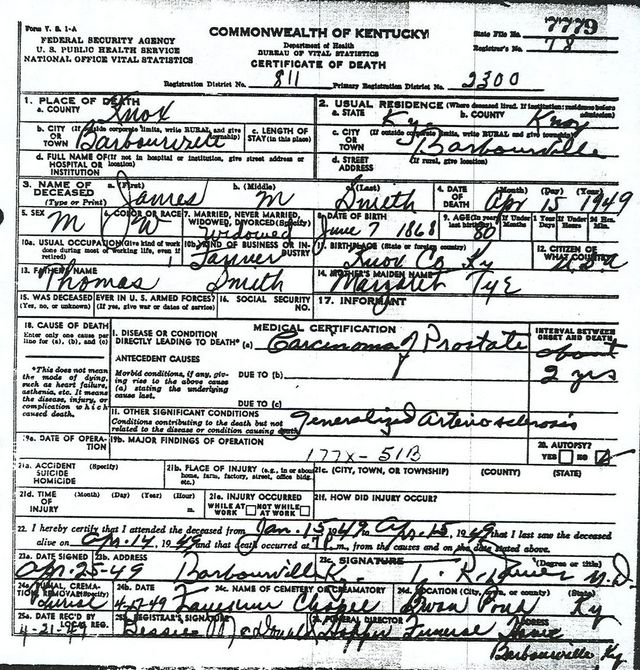 Form V. S. 1-A
FEDERAL SECURITY AGENCY
U. S. PUBLIC HEALTH SERVICE
NATIONAL OFFICE VITAL STATISTICS
COMMONWEALTH OF KENTUCKY
Department of Health
BUREAU OF VITAL STATISTICS
CERTIFICATE OF DEATH
State File No. 7779
Registrar's No. 78
Registration District No. 811 Primary Registration District No. 2300
1. PLACE OF DEATH
a. COUNTY Knox
2. USUAL RESIDENCE (Where deceased lived. If institution: residence before admission)
a. STATE Ky b. COUNTY Knox
b. CITY (If outside corporate limits, write RURAL and give township)
OR TOWN Barbourville
c. LENGTH OF STAY (in this place)
c. CITY (If outside corporate limits, write RURAL and give township)
OR TOWN Barbourville
d. FULL NAME OF (If not in hospital or institution, give street address or location)
HOSPITAL OR INSTITUTION
d. STREET ADDRESS (If rural, give location)
3. NAME OF DECEASED (Type or Print)
a. (First) James b. (Middle) M c. (Last) Smith
4. DATE OF DEATH (Month) (Day) (Year) Apr 15 1949
5. SEX M
6. COLOR OR RACE W
7. MARRIED, NEVER MARRIED, WIDOWED, DIVORCED (Specify) Widowed
8. DATE OF BIRTH June 7 1868
9. AGE (In years last birthday) 80 If Under 1 Year Months Days If Under 24 Hrs. Hours Min.
10a. USUAL OCCUPATION (Give kind of work done during most of working life, even if retired)
10b. KIND OF BUSINESS OR INDUSTRY
11. BIRTHPLACE (State or foreign country) Knox Co Ky
12. CITIZEN OF WHAT COUNTRY? USA
13. FATHER'S NAME Thomas Smith
14. MOTHER'S MAIDEN NAME Margaret Tye
15. WAS DECEASED EVER IN U. S. ARMED FORCES?
(Yes, no, or unknown) (If yes, give war or dates of service)
16. SOCIAL SECURITY NO.
17. INFORMANT
18. CAUSE OF DEATH
Enter only one cause per line for (a), (b), and (c)
*This does not mean the mode of dying, such as heart failure, asthenia, etc. It means the disease, injury, or complication which caused death.
MEDICAL CERTIFICATION
I. DISEASE OR CONDITION DIRECTLY LEADING TO DEATH* (a) Carcinoma of Prostate
INTERVAL BETWEEN ONSET AND DEATH
about 2 yrs
ANTECEDENT CAUSES
Morbid conditions, if any, giving rise to the above cause (a) stating the underlying cause last.
DUE TO (b)
DUE TO (c)
II. OTHER SIGNIFICANT CONDITIONS
Conditions contributing to the death but not related to the disease or condition causing death.
Generalized Arteriosclerosis
19a. DATE OF OPERATION
19b. MAJOR FINDINGS OF OPERATION
177X - 51B
20. AUTOPSY?
YES NO
21a. ACCIDENT SUICIDE HOMICIDE (Specify)
21b. PLACE OF INJURY (e.g., in or about home, farm, factory, street, office bldg. etc.)
21c. (CITY, TOWN, OR TOWNSHIP) (COUNTY) (STATE)
21d. TIME OF INJURY (Month) (Day) (Year) (Hour) m.
21e. INJURY OCCURRED
WHILE AT WORK NOT WHILE AT WORK
21f. HOW DID INJURY OCCUR?
22. I hereby certify that I attended the deceased from Jan. 15, 1949 to Apr 15, 1949 that I last saw the deceased
alive on Apr. 14, 1949 and that death occurred at m., from the causes and on the date stated above.
23a. DATE SIGNED Apr-25-49
23b. ADDRESS Barbourville Ky
23c. SIGNATURE (Degree or title) M.D.
24a. BURIAL, CREMATION, REMOVAL (Specify) Burial
24b. DATE
24c. NAME OF CEMETERY OR CREMATORY Chapel
24d. LOCATION (City, town, or county) (State) Swan Pond Ky
25a. DATE REC'D BY LOCAL REG. 4-21-49
25b. REGISTRAR'S SIGNATURE Bessie McDonald
FUNERAL DIRECTOR Hopper Funeral Home
ADDRESS Barbourville Ky